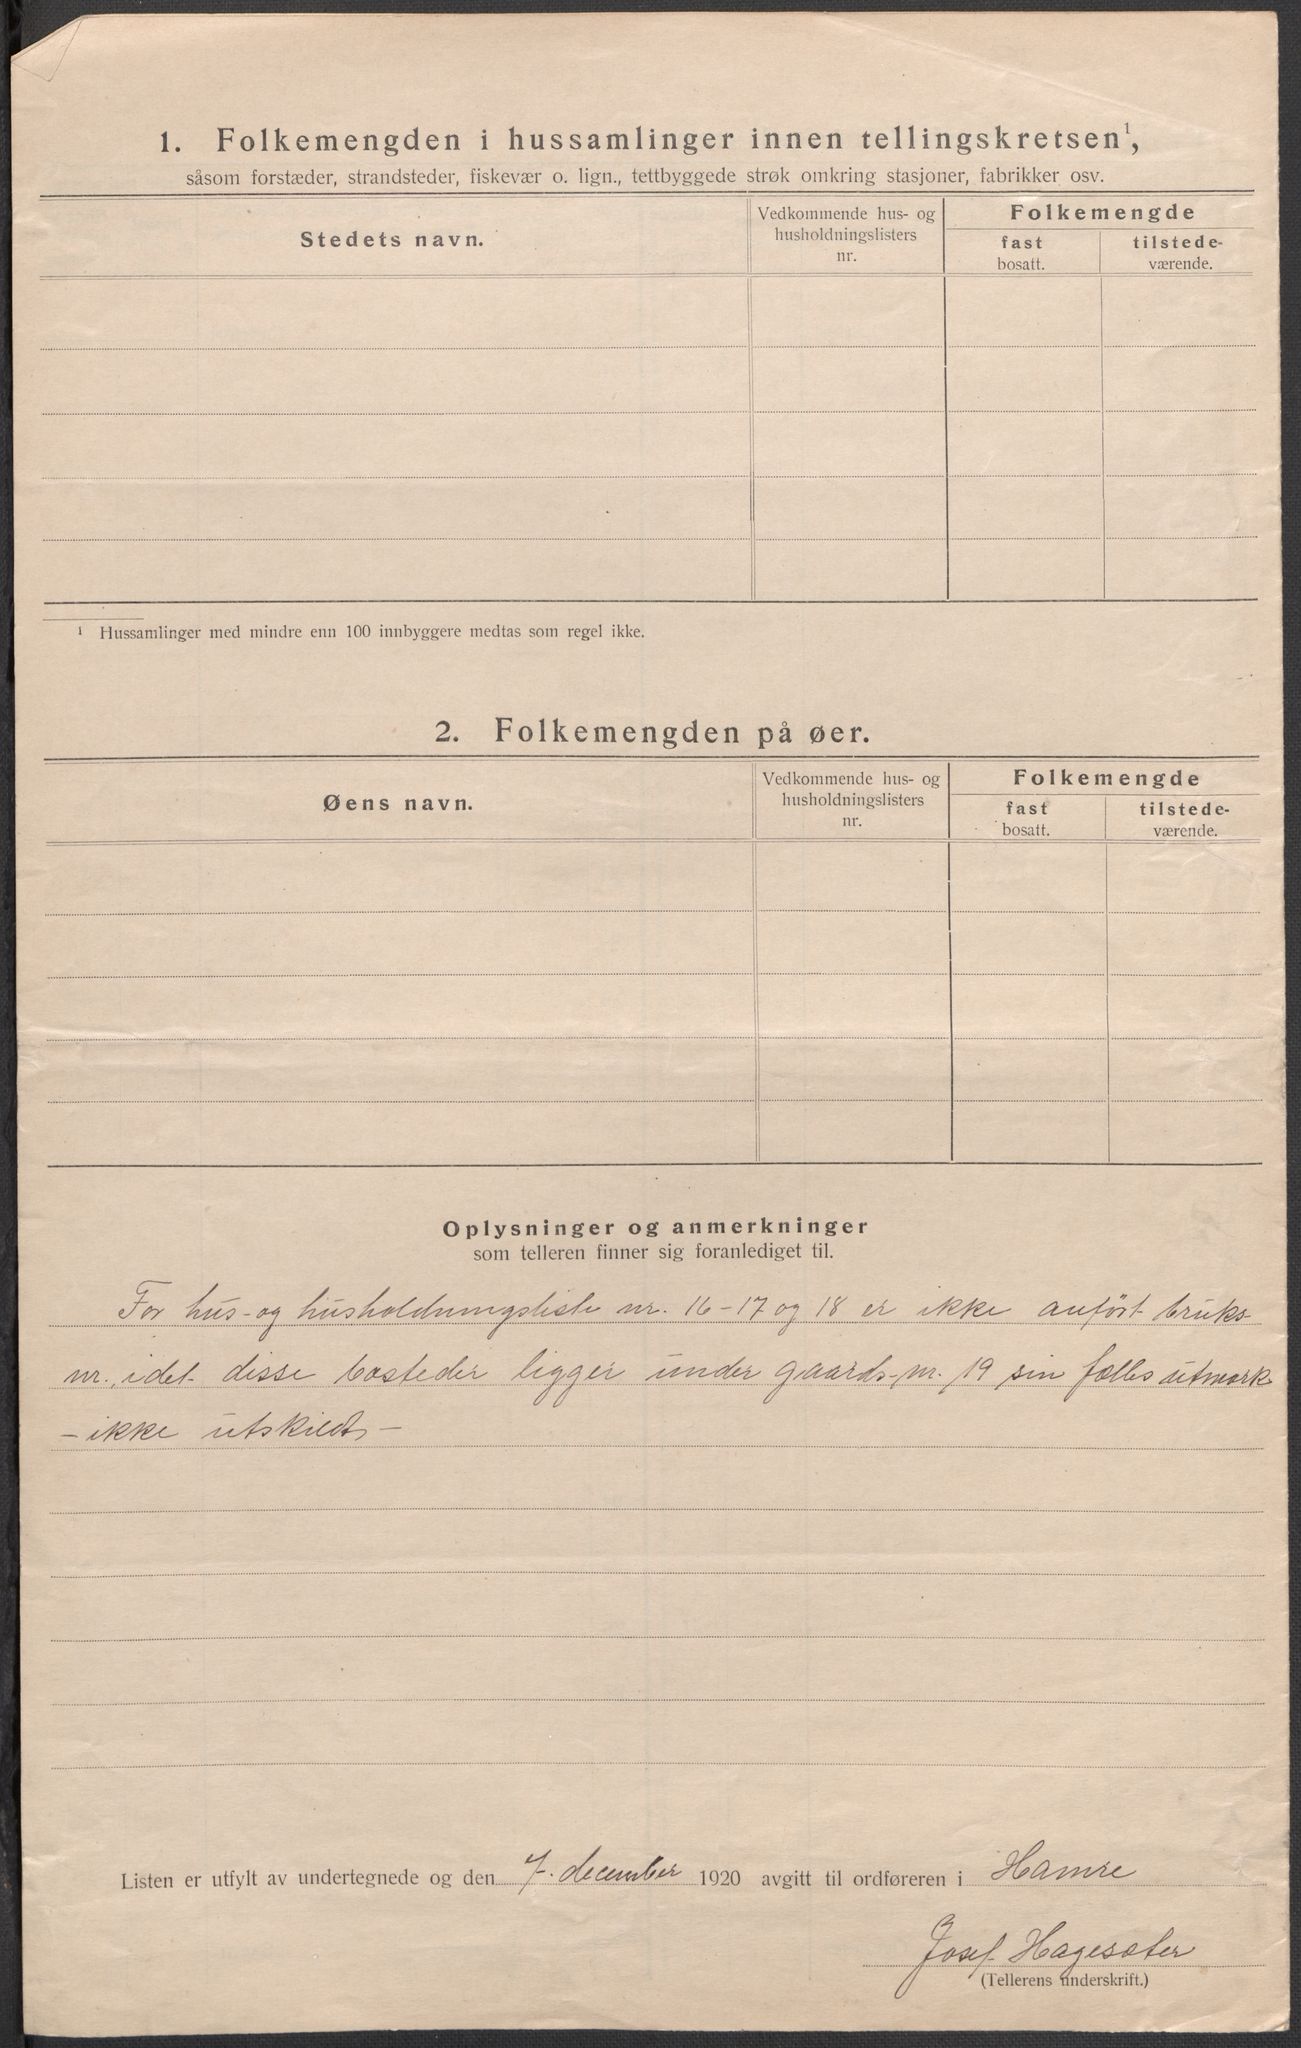 1. Folkemengden i hussamlinger innen tellingskretsen¹,
såsom forstæder, strandsteder, fiskevær o. lign., tettbyggede strøk omkring stasjoner, fabrikker osv.
Stedets navn.
Vedkommende hus- og
husholdningslisters
nr.
Folkemengde
fast
bosatt.
tilstede-
værende.
¹ Hussamlinger med mindre enn 100 innbyggere medtas som regel ikke.
2. Folkemengden på øer.
Øens navn.
Vedkommende hus- og
husholdningslisters
nr.
Folkemengde
fast
bosatt.
tilstede-
værende.
Oplysninger og anmerkninger
som telleren finner sig foranlediget til.
For hus- og husholdningsliste nr. 16-17 og 18 er ikke anført bruks-
nr., idet disse bosteder ligger under gaards-nr. 19 sin fælles utmark
- ikke utskildt -
Listen er utfylt av undertegnede og den 7. december 1920 avgitt til ordføreren i Hamre
Josef Hagesæter
(Tellerens underskrift.)